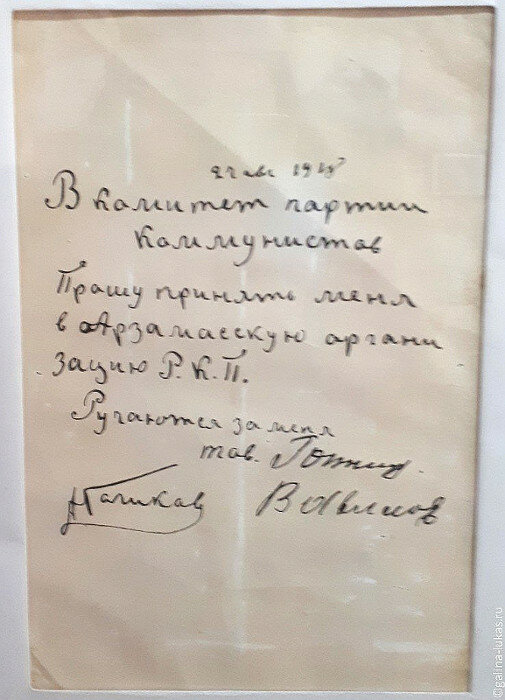 авг 1918
В комитет партии
коммунистов
Прошу принять меня
в Арзамасскую органи
зацию Р.К.П.
Ручаются за меня
тов.
Вавилов
АГоликов
©galina-lukas.ru